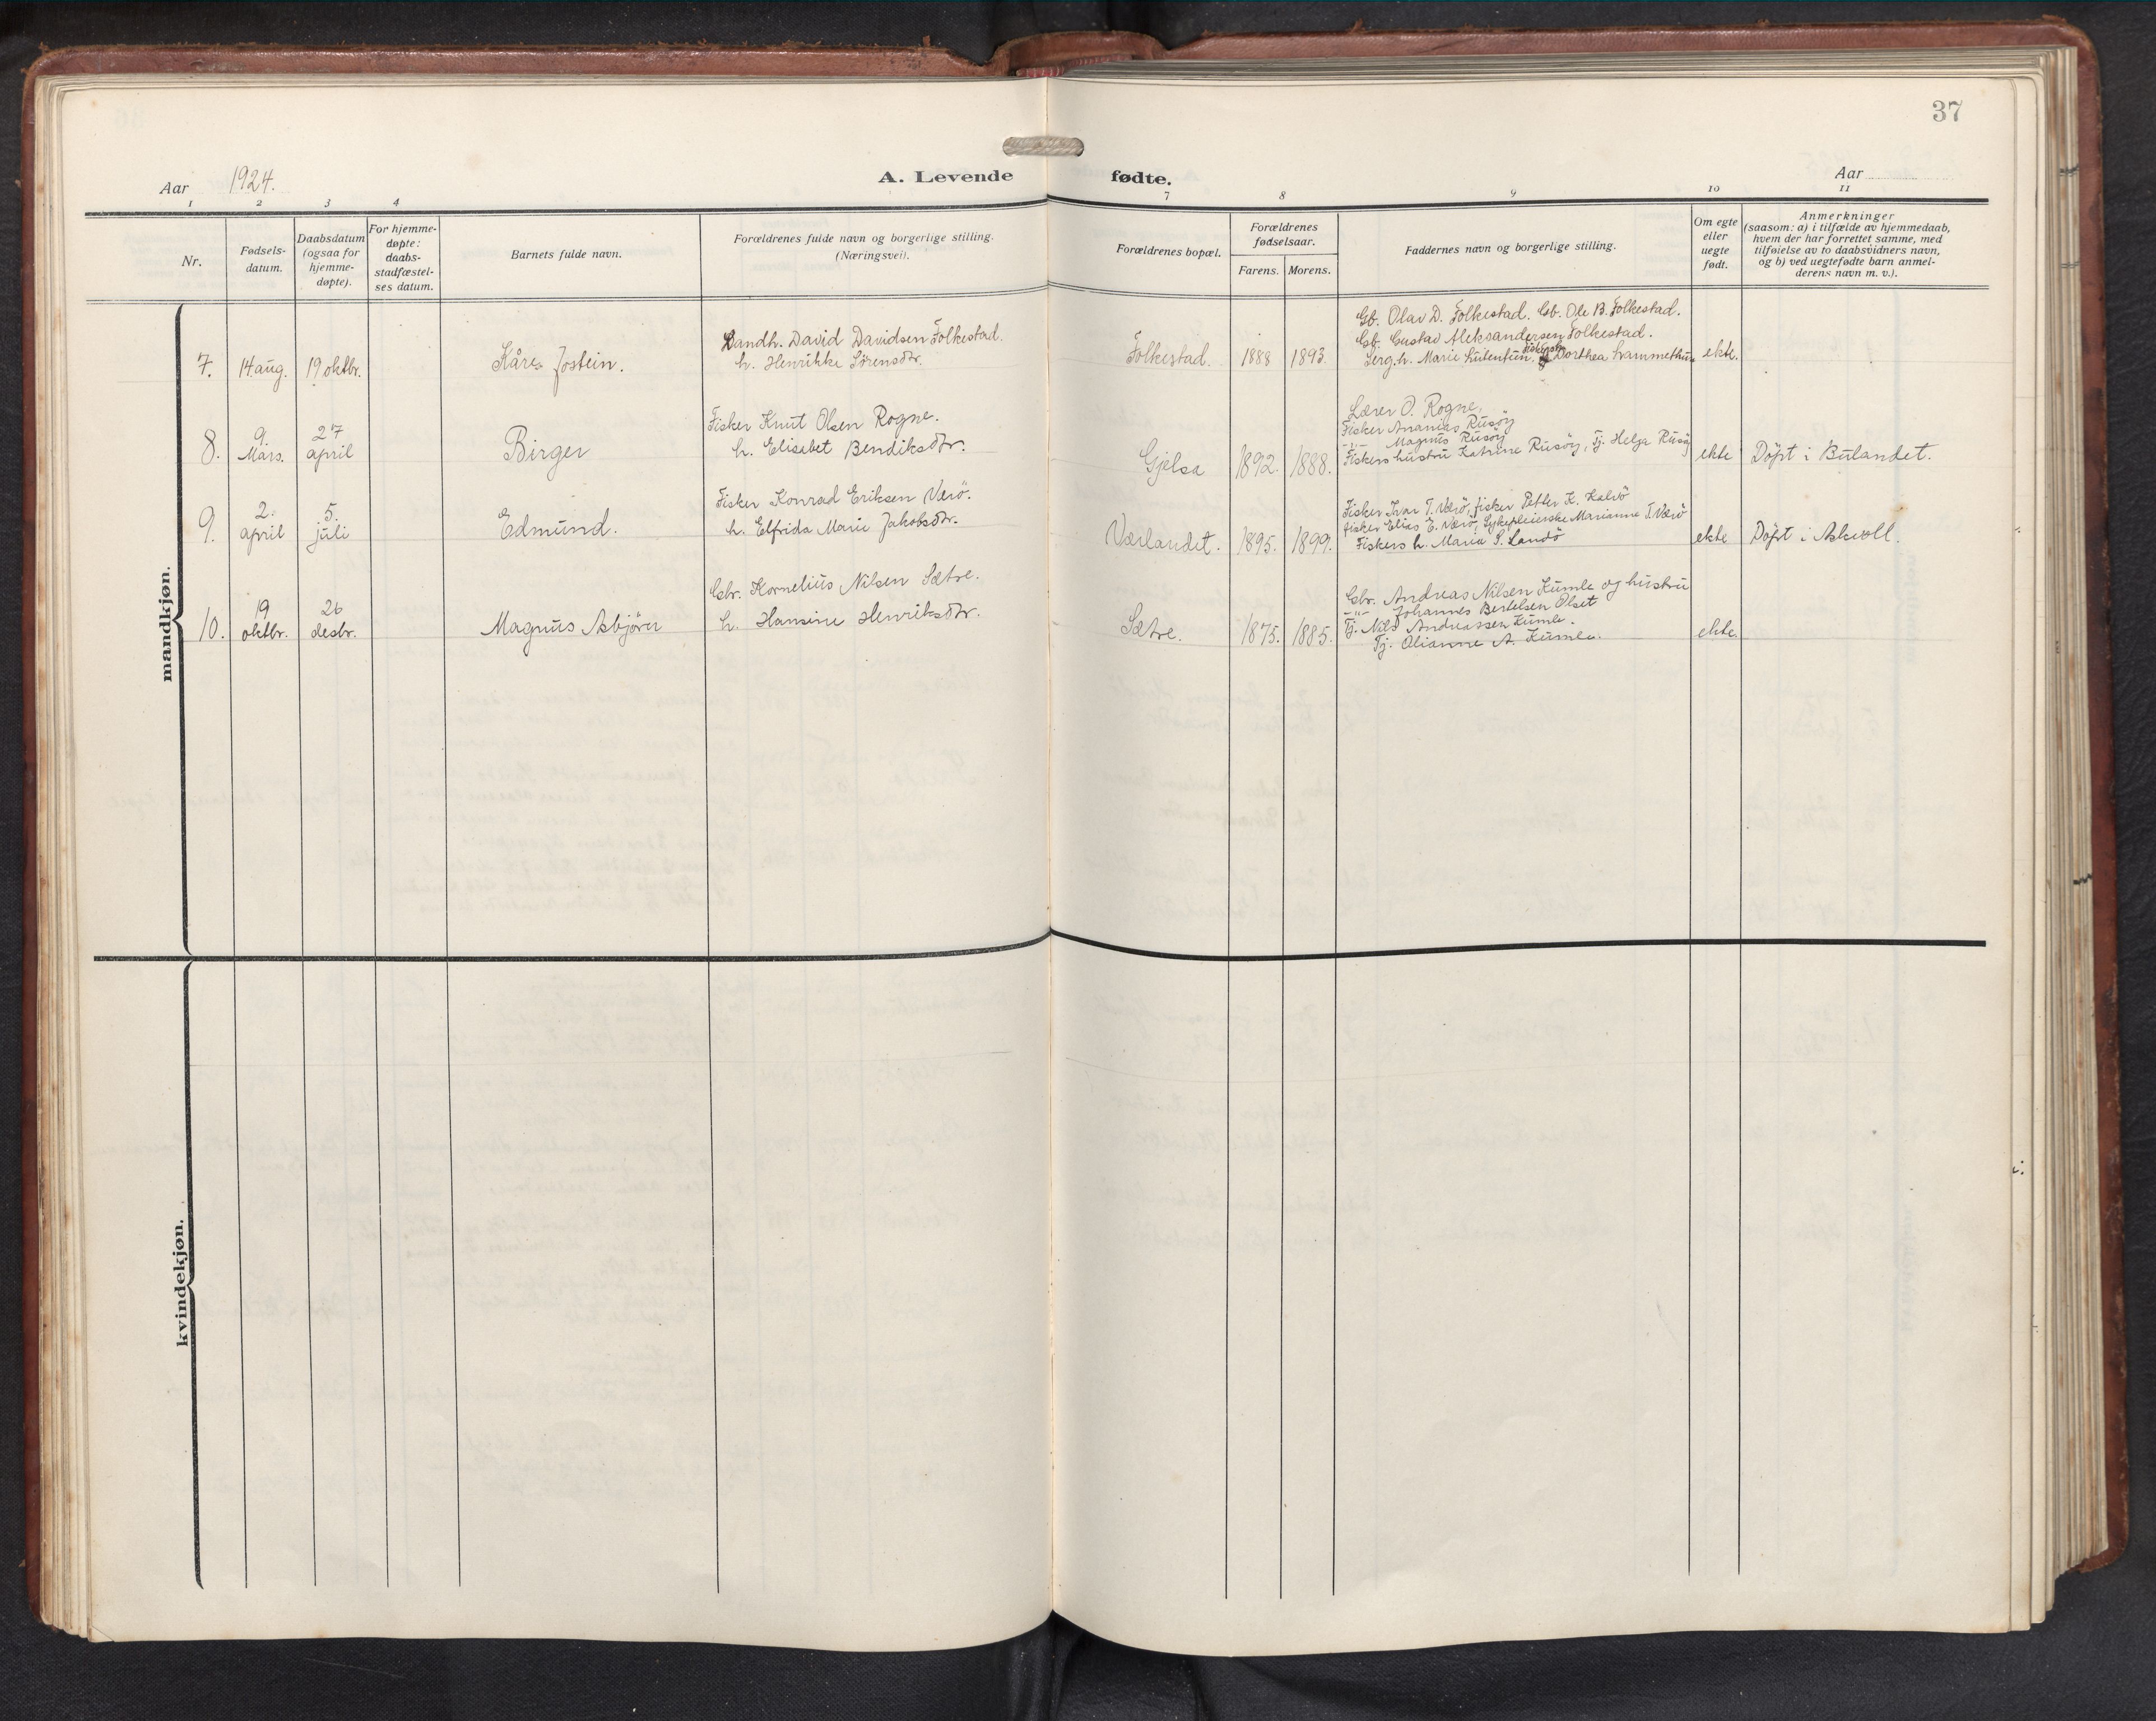 37
Aar 1924.
A. Levende fødte.
Aar
1 2 3 4 7 8 9 10 11
Nr.
Fødsels-
datum.
Daabsdatum
(ogsaa for
hjemme-
døpte).
For hjemme-
døpte:
daabs-
stadfæstel-
ses datum.
Barnets fulde navn.
Forældrenes fulde navn og borgerlige stilling.
(Næringsvei).
Forældrenes bopæl.
Forældrenes
fødselsaar.
Farens.
Morens.
Faddernes navn og borgerlige stilling.
Om egte
eller
uegte
født.
Anmerkninger
(saasom: a) i tilfælde av hjemmedaab,
hvem der har forrettet samme, med
tilføielse av to daabsvidners navn,
og b) ved uegtefødte barn anmel-
derens navn m. v.).
mandkjøn.
7.
14 aug.
19 oktbr.
Kåre Jostein.
Landh. David Davidsen Folkestad.
h. Henrikke Sörensdtr.
Folkestad.
1888
1893.
Gb. Olav D. Folkestad. Gb. Ole B. Folkestad.
Gb. Gustav Aleksandersen Folkestad.
Serg. h. Marie Dorthea
ekte.
8.
9.
Mars.
27
april
Birger
Fisker Knut Olsen Rogne.
h. Elisabet Bendiksdtr.
Gjelsa
1892.
1888.
Lærer O. Rogne,
Fisker Ananias Rusöy
-"- Magnus Rusöy
Fiskers hustru Katrine Rusöy, Tj. Helga Rusöy
ekte
Döpt i Bulandet.
9.
2.
april
5.
juli
Edmund.
Fisker Konrad Eriksen Værö.
h. Elfrida Marie Jakobsdtr.
Værlandet.
1895.
1899.
Fisker Ivar T. Værö, fisker Petter K. Kalvö
fisker Elias E. Værö, Sykepleierske Marianne T. Værö
Fiskers h. Maria S. Landö
ekte
Döpt i Askvoll.
10.
19
oktbr.
26
desbr.
Magnus Asbjörn
Gbr. Kornelius Nilsen Sætre.
h. Hansine Henriksdtr.
Sætre.
1875.
1885.
Gbr. Andreas Nilsen Kumle og hustru
-"- Johannes Bertelsen Olset
Tj. Nils Andreassen Kumle.
Tj. Olianne A. Kumle.
ekte.
kvindekjøn.